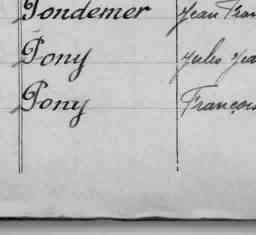 Pondemer Jean Fran
Pony Jules Jea
Pony François